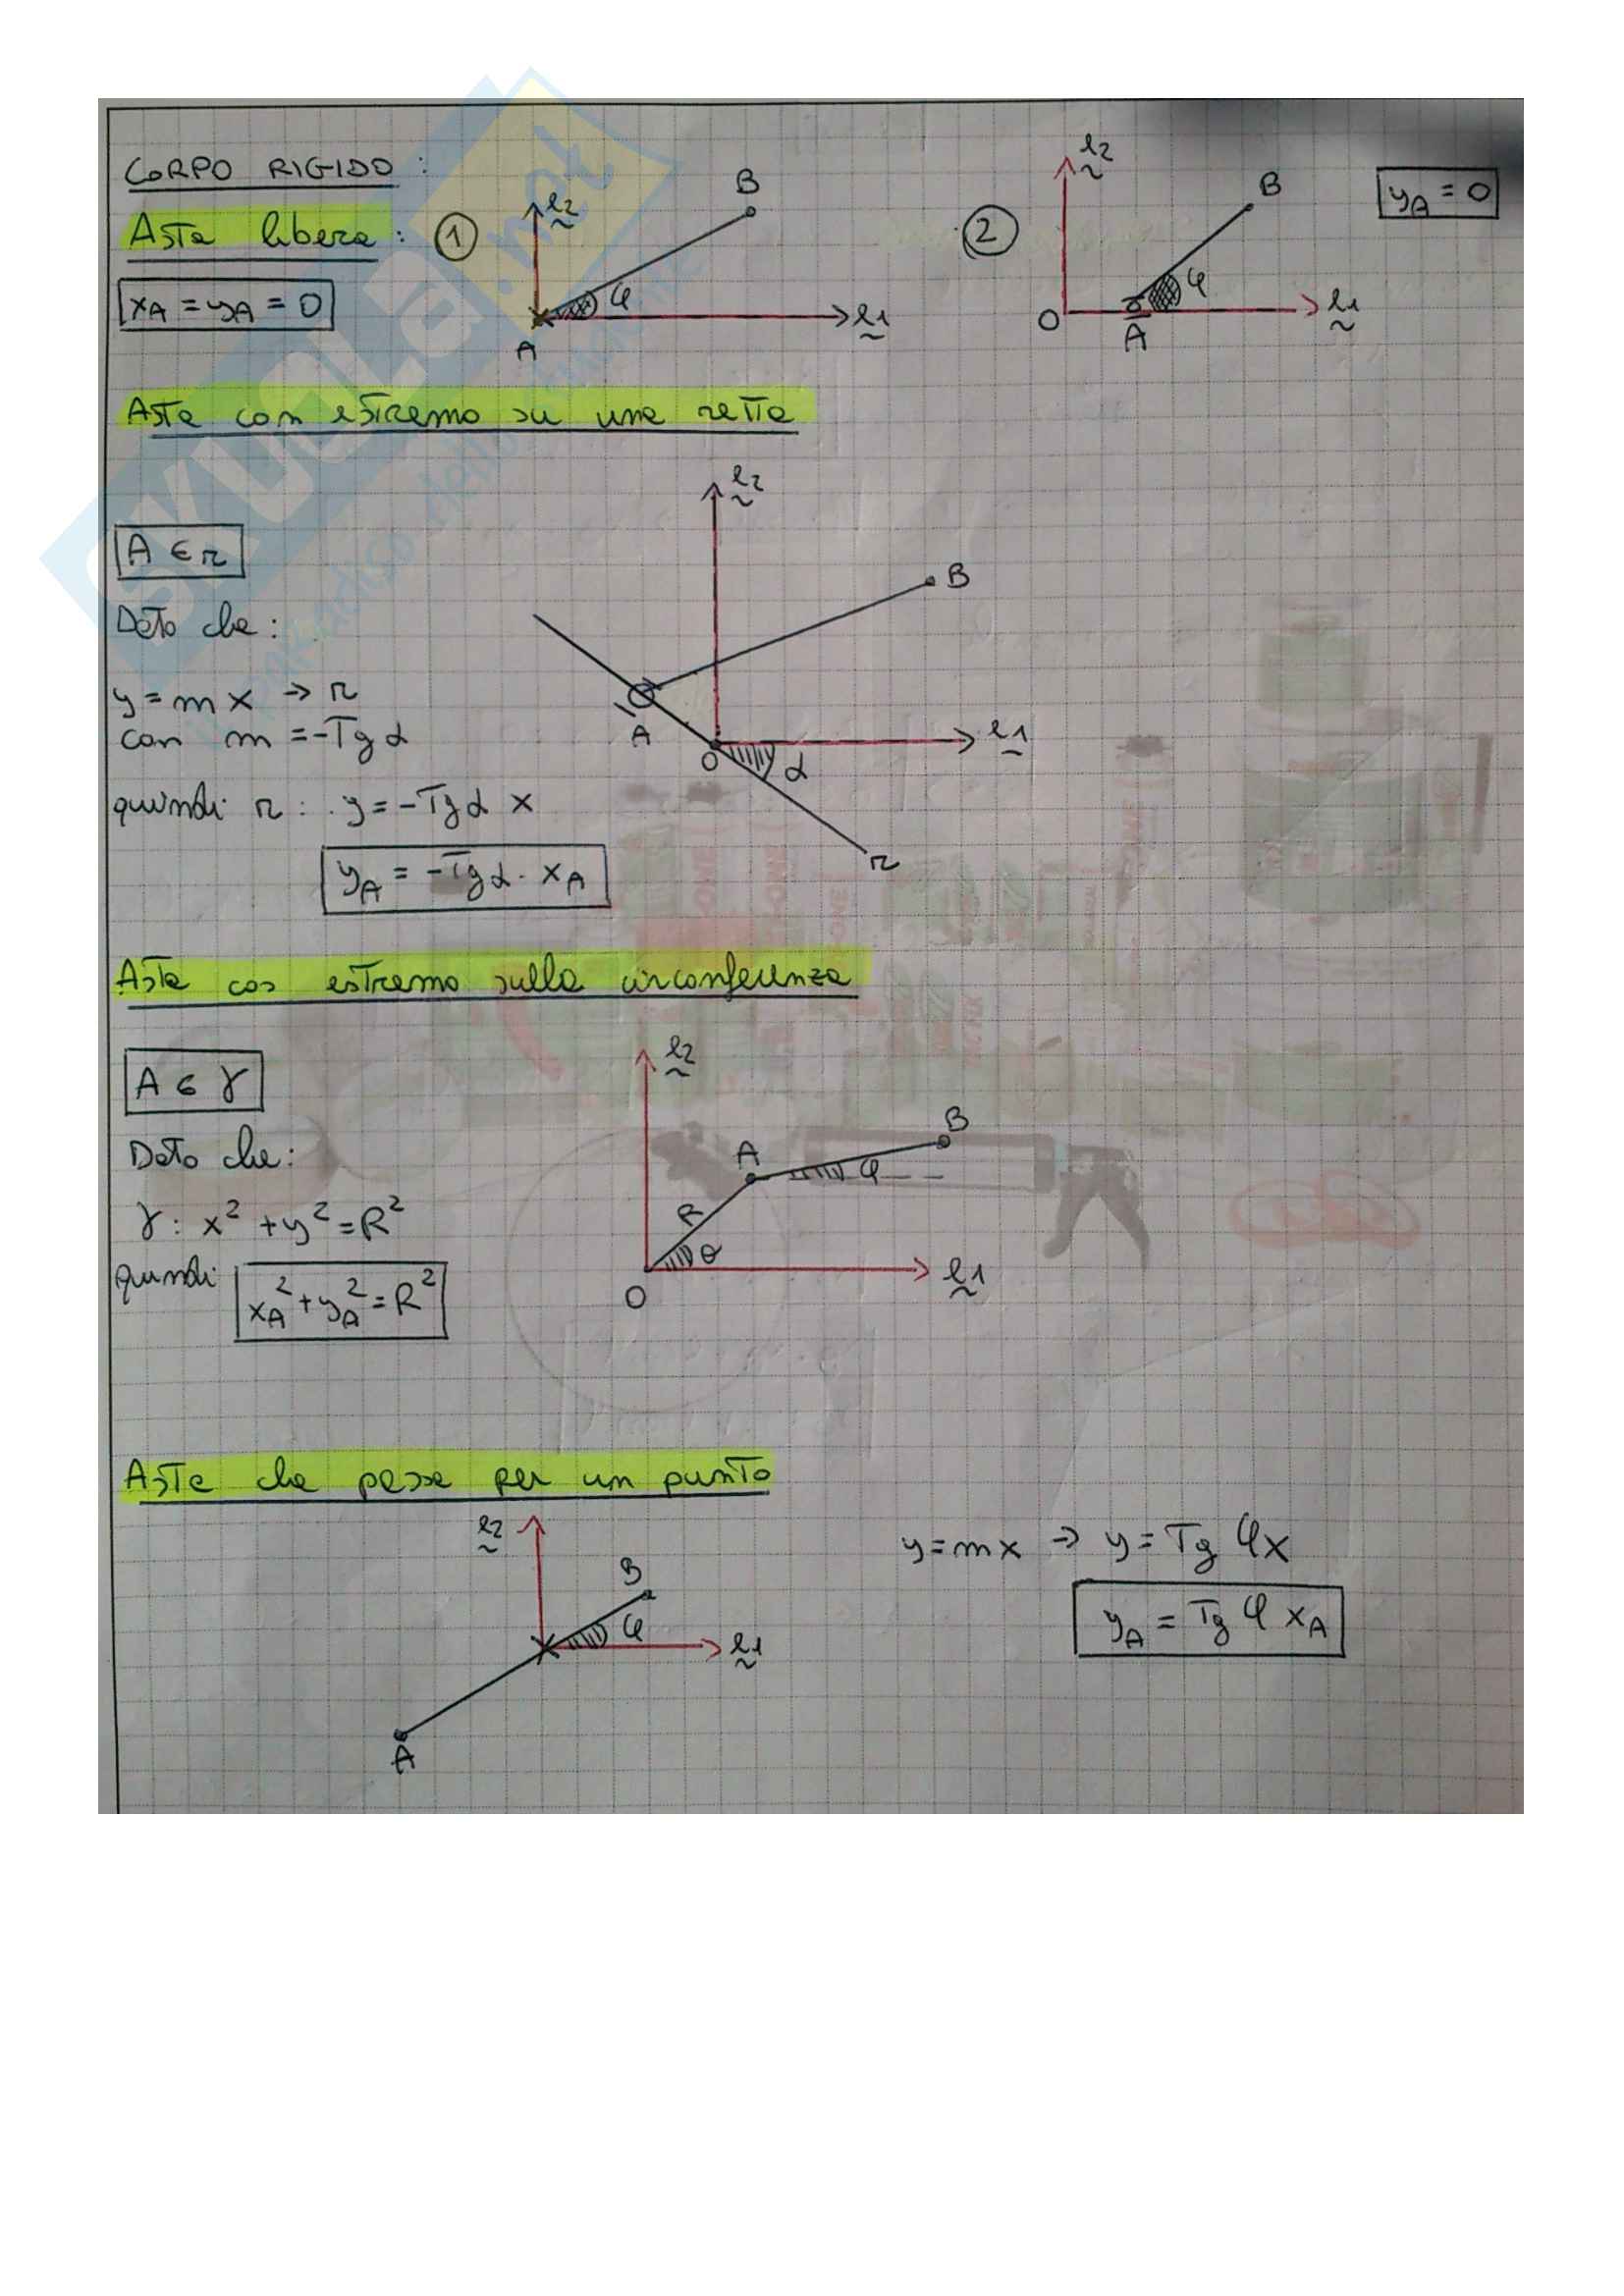 CORPO RIGIDO:
Asta libera: 1 2
xA = yA = 0
e2
B
φ
e1
A
e2
B
φ
O
A
e1
yA = 0
Asta con estremo su una retta
A ∈ r
Dato che:
y = mx → r
con m = -Tg α
quindi r: y = -Tg α x
yA = -Tg α · xA
e2
B
A
O
α
e1
r
Asta cos estremo sulla circonferenza
A ∈ γ
Dato che:
γ: x² + y² = R²
quindi xA² + yA² = R²
e2
A
B
φ
R
θ
O
e1
Asta che passa per un punto
e2
B
φ
e1
A
y = mx → y = Tg φ x
yA = Tg φ xA
SKUOLa.net